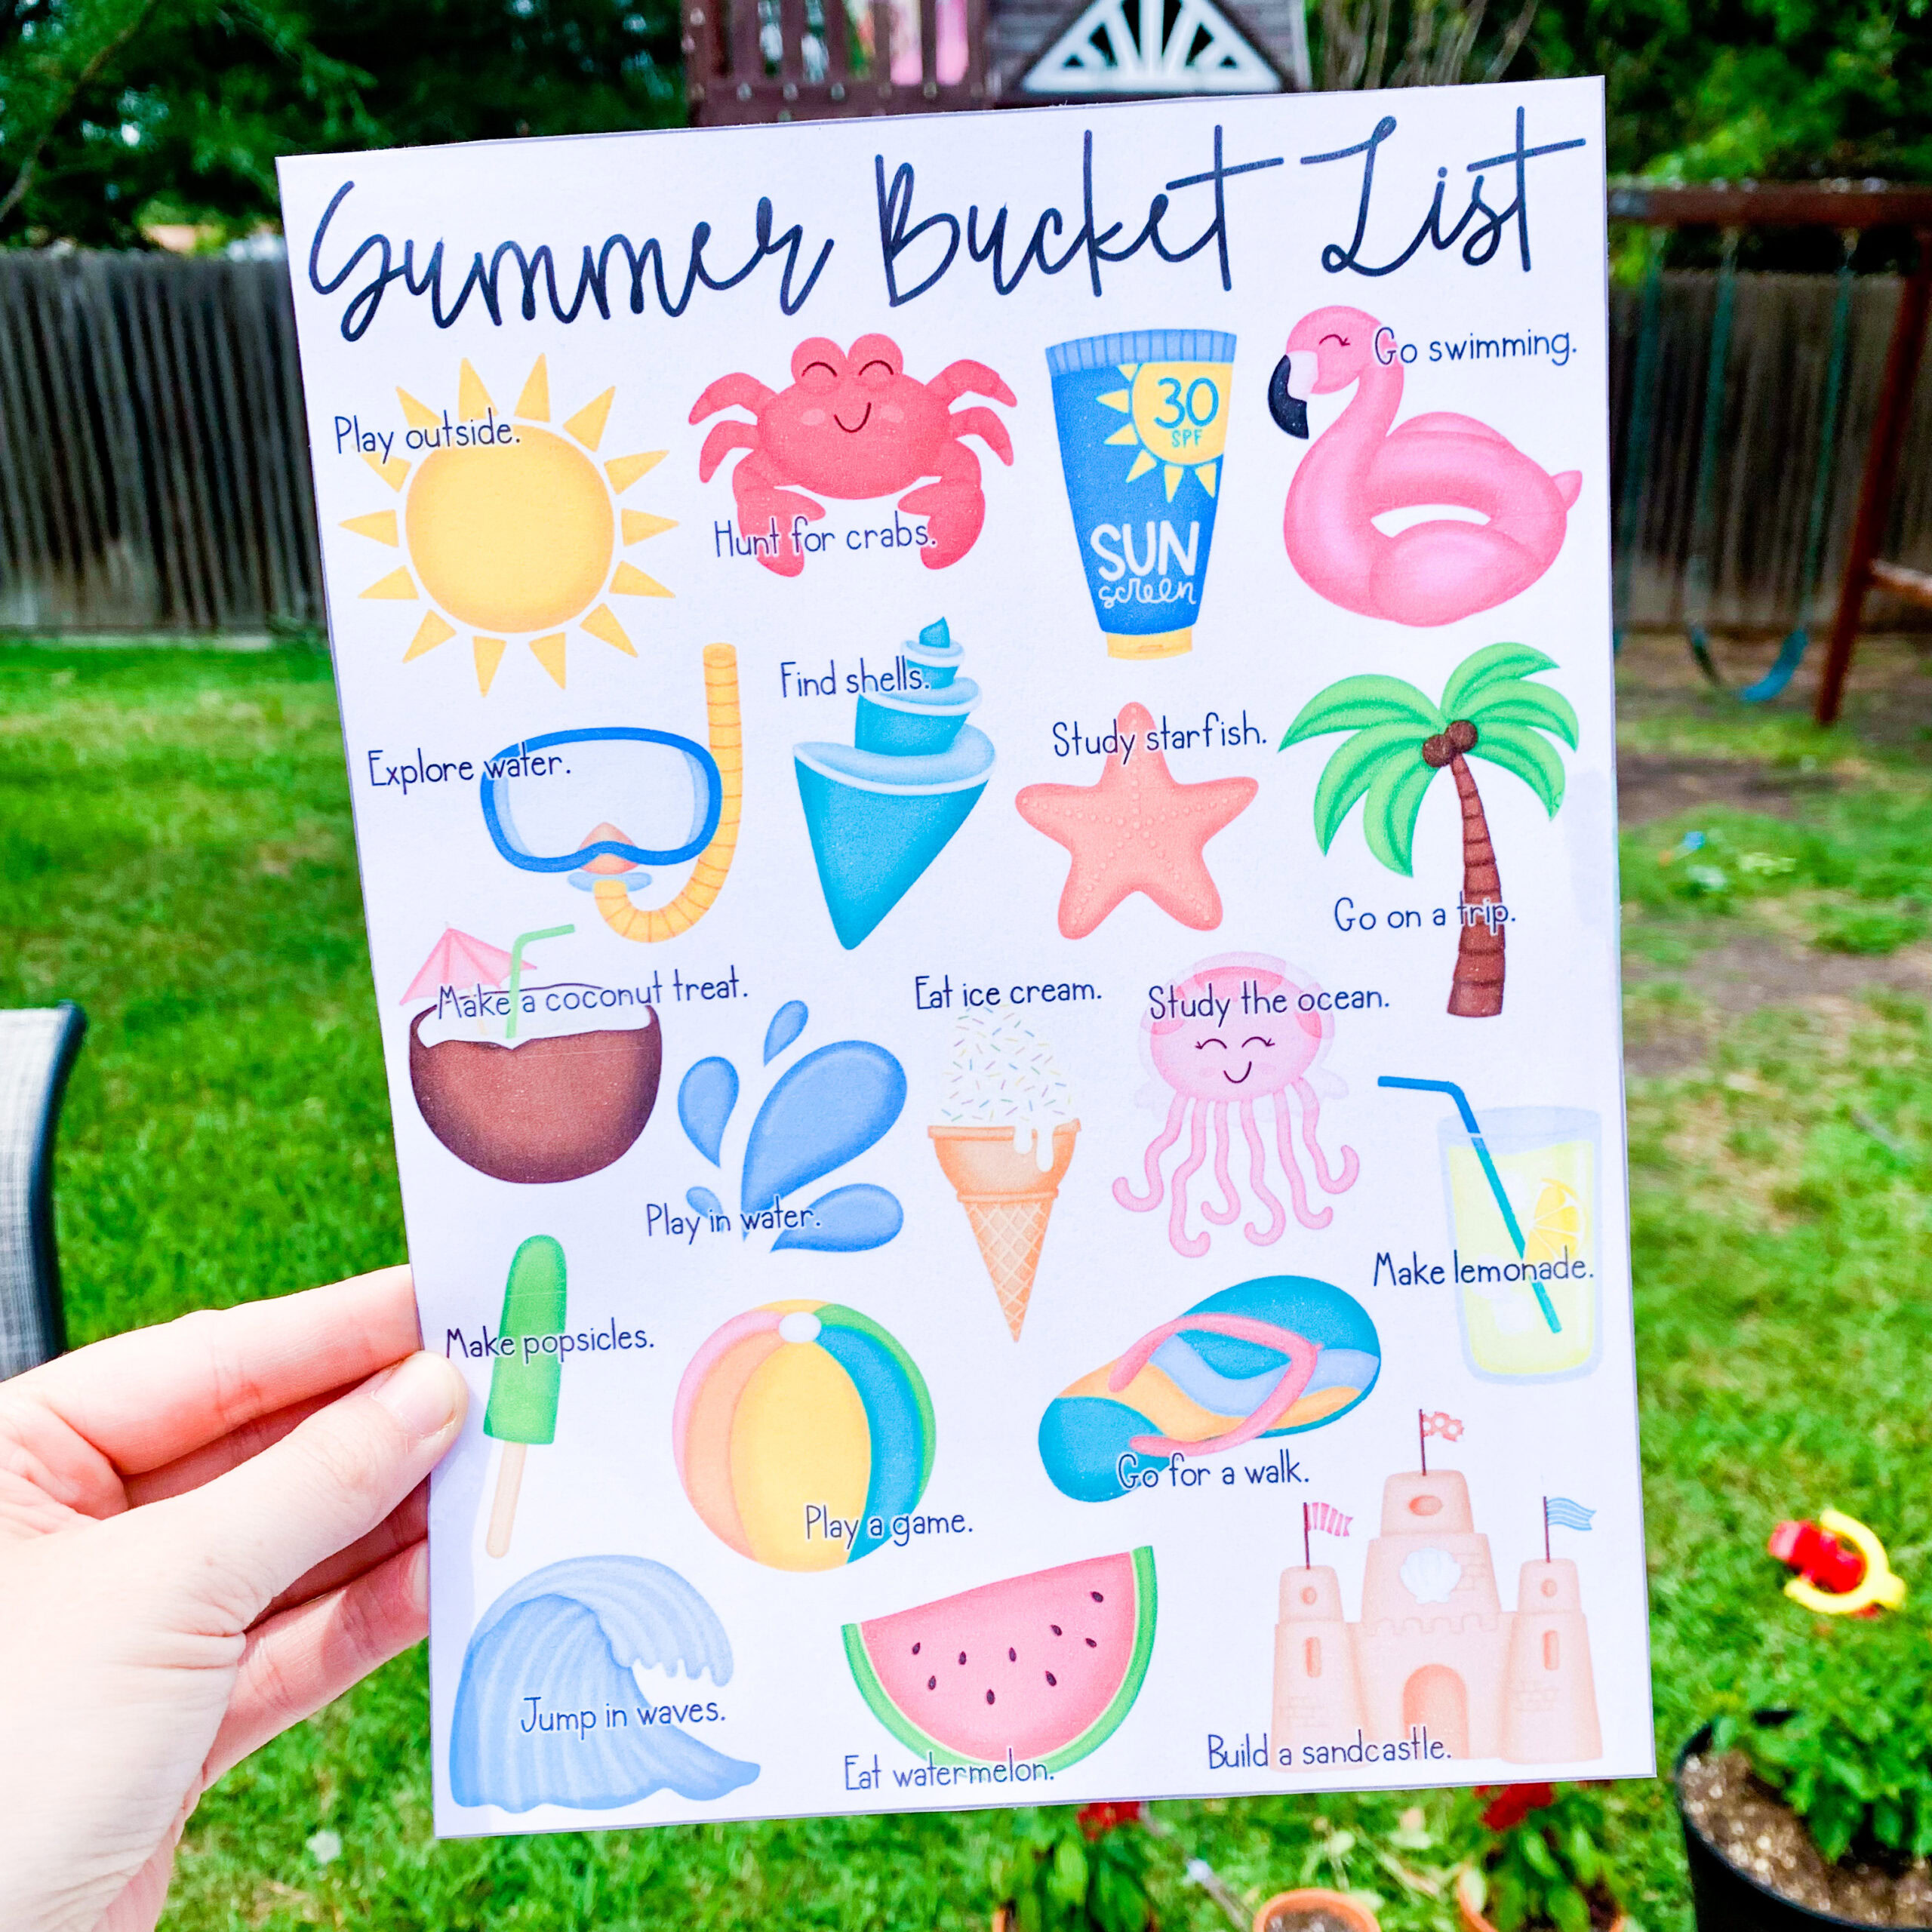 Summer Bucket List
Play outside.
Hunt for crabs.
30
SPF
SUN
screen
Go swimming.
Explore water.
Find shells.
Study starfish.
Go on a trip.
Make a coconut treat.
Play in water.
Eat ice cream.
Study the ocean.
Make lemonade.
Make popsicles.
Play a game.
Go for a walk.
Jump in waves.
Eat watermelon.
Build a sandcastle.